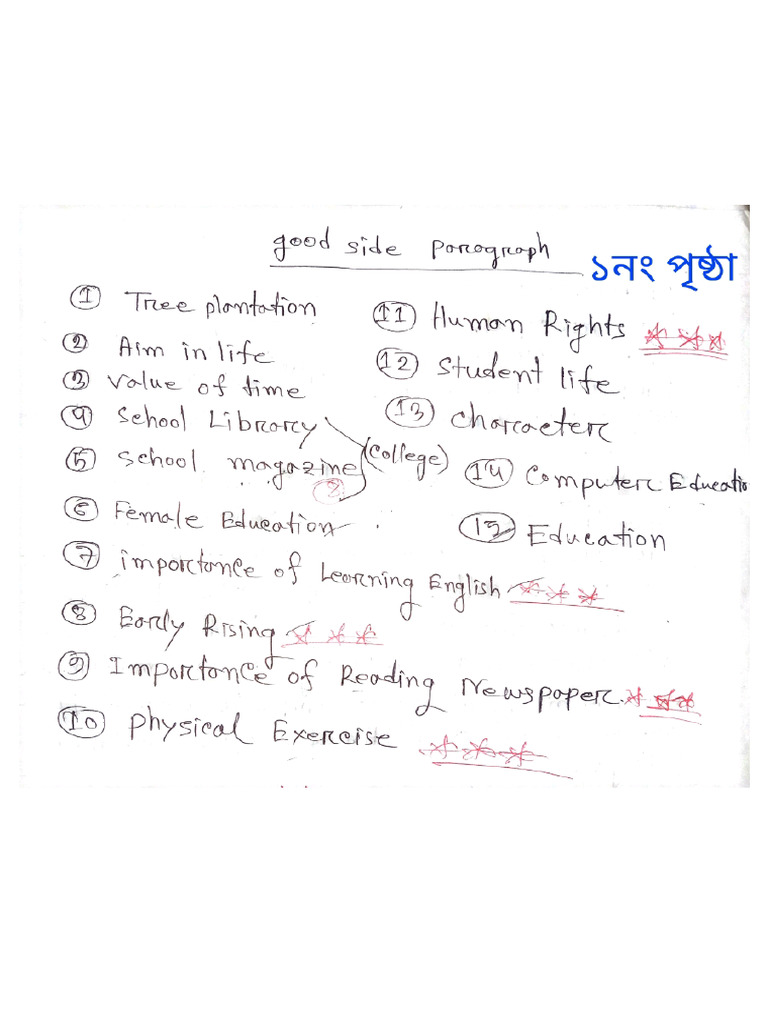 good side paragraph
১নং পৃষ্ঠা
① Tree plantation
② Aim in life
③ Value of time
④ School Library
⑤ School magazine (College)
⑥ Female Education
⑦ importance of Learning English ***
⑧ Early Rising ***
⑨ Importance of Reading Newspaper ***
⑩ Physical Exercise ***
⑪ Human Rights ***
⑫ Student life
⑬ Character
⑭ Computer Education
⑮ Education